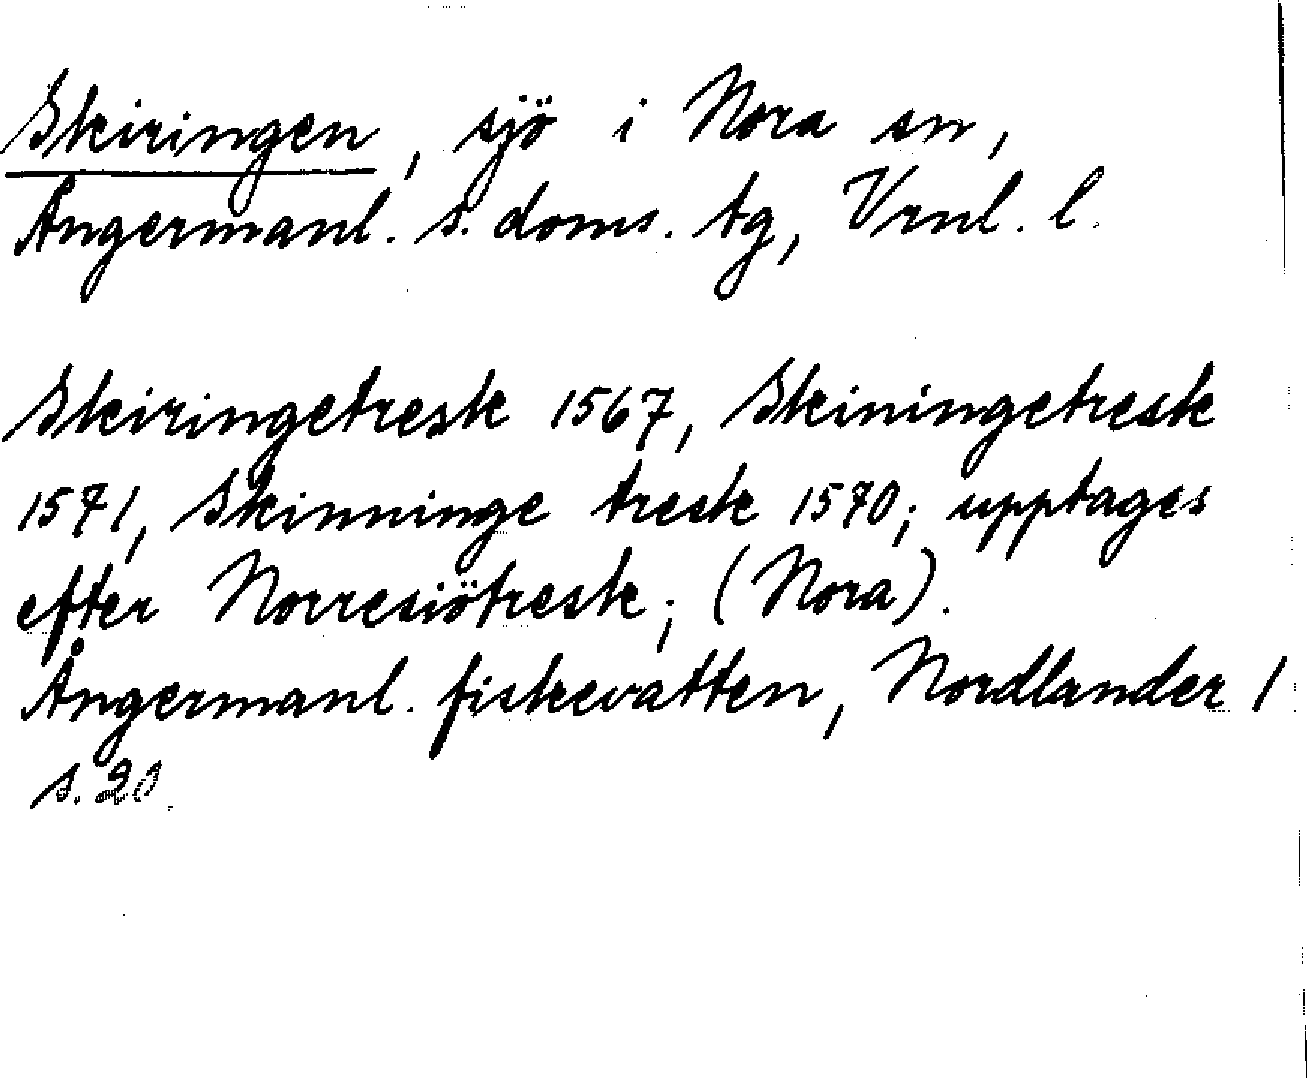 Skiringen, sjö i Nora sn,
Ångermanl. s. doms. tg, Vrnl. l.
Skiringetresk 1567, Skiningetresk
1571, Skinninge tresk 1570; upptages
efter Norresiötresk; (Nora).
Ångermanl. fiskevatten, Nordlander 1
s. 20.